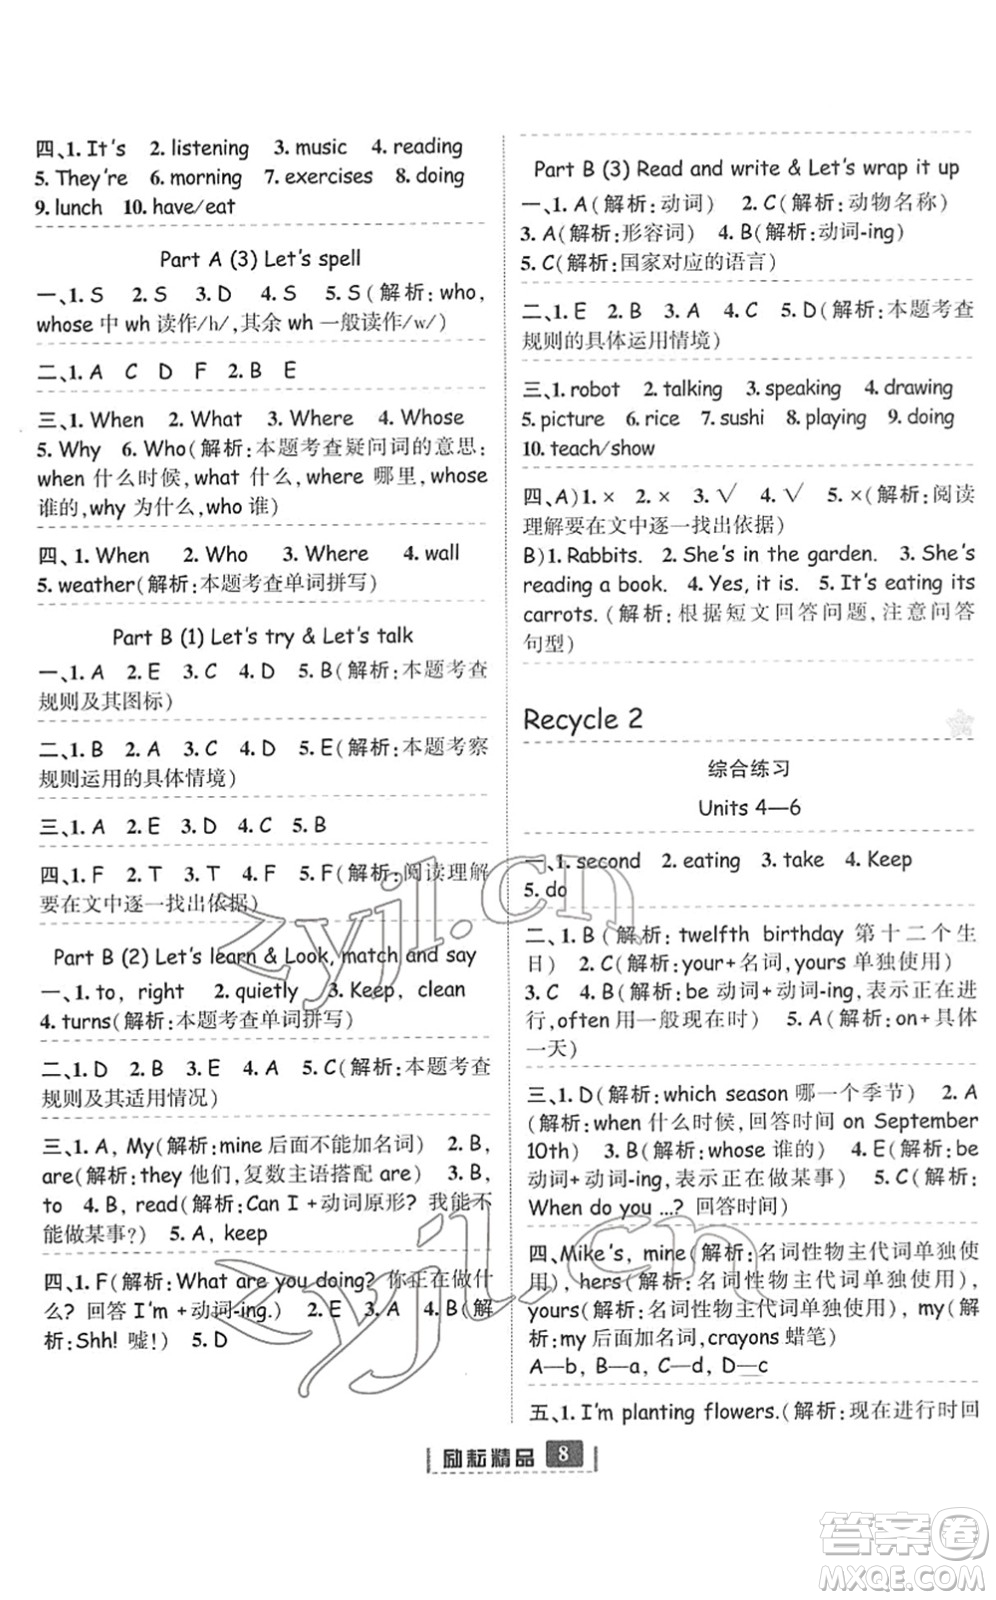 四、1. It's 2. listening 3. music 4. reading
5. They're 6. morning 7. exercises 8. doing
9. lunch 10. have/eat
Part A (3) Let's spell
一、1. S 2. S 3. D 4. S 5. S(解析:who,
whose 中 wh 读作/h/,其余 wh 一般读作/w/)
二、1. A C D F 2. B E
三、1. When 2. What 3. Where 4. Whose
5. Why 6. Who(解析:本题考查疑问词的意思:
when 什么时候, what 什么, where 哪里, whose
谁的, why 为什么, who 谁)
四、1. When 2. Who 3. Where 4. wall
5. weather(解析:本题考查单词拼写)
Part B (1) Let's try & Let's talk
一、1. A 2. E 3. C 4. D 5. B(解析:本题考查
规则及其图标)
二、1. B 2. A 3. C 4. D 5. E(解析:本题考察
规则运用的具体情境)
三、1. A 2. E 3. D 4. C 5. B
四、1. F 2. T 3. T 4. F 5. F(解析:阅读理解
要在文中逐一找出依据)
Part B (2) Let's learn & Look, match and say
一、1. to, right 2. quietly 3. Keep, clean
4. turns(解析:本题考查单词拼写)
二、1. D 2. B 3. E 4. A 5. C(解析:本题考查
规则及其适用情况)
三、1. A, My(解析:mine 后面不能加名词) 2. B,
are(解析:they 他们,复数主语搭配 are) 3. B,
to 4. B, read(解析:Can I +动词原形? 我能不
能做某事?) 5. A, keep
四、1. F(解析:What are you doing? 你正在做什
么? 回答 I'm +动词-ing.) 2. E 3. A 4. B(解
析:Shh! 嘘!) 5. D
Part B (3) Read and write & Let's wrap it up
一、1. A(解析:动词) 2. C(解析:动物名称)
3. A(解析:形容词) 4. B(解析:动词-ing)
5. C(解析:国家对应的语言)
二、1. E 2. B 3. A 4. C 5. D(解析:本题考查
规则的具体运用情境)
三、1. robot 2. talking 3. speaking 4. drawing
5. picture 6. rice 7. sushi 8. playing 9. doing
10. teach/show
四、A)1. × 2. × 3. √ 4. √ 5. ×(解析:阅读
理解要在文中逐一找出依据)
B)1. Rabbits. 2. She's in the garden. 3. She's
reading a book. 4. Yes, it is. 5. It's eating its
carrots. (解析:根据短文回答问题,注意问答
句型)
Recycle 2
综合练习
Units 4—6
一、1. second 2. eating 3. take 4. Keep
5. do
二、1. B(解析:twelfth birthday 第十二个生
日) 2. A(解析:your+名词, yours 单独使用)
3. C 4. B(解析:be 动词+动词-ing,表示正在进
行, often 用一般现在时) 5. A(解析:on+具体
一天)
三、1. D(解析:which season 哪一个季节) 2. A
(解析:when 什么时候,回答时间 on September
10th) 3. B(解析:whose 谁的) 4. E(解析:be
动词+动词-ing,表示正在做某事) 5. C(解析:
When do you ...? 回答时间)
四、Mike's, mine(解析:名词性物主代词单独使
用), hers(解析:名词性物主代词单独使用),
yours(解析:名词性物主代词单独使用), my(解
析:my 后面加名词, crayons 蜡笔)
A—b, B—a, C—d, D—c
五、1. I'm planting flowers. (解析:现在进行时回
励耘精品 8
zyjl.cn
zyjl.cn
答案卷
MXQE.COM